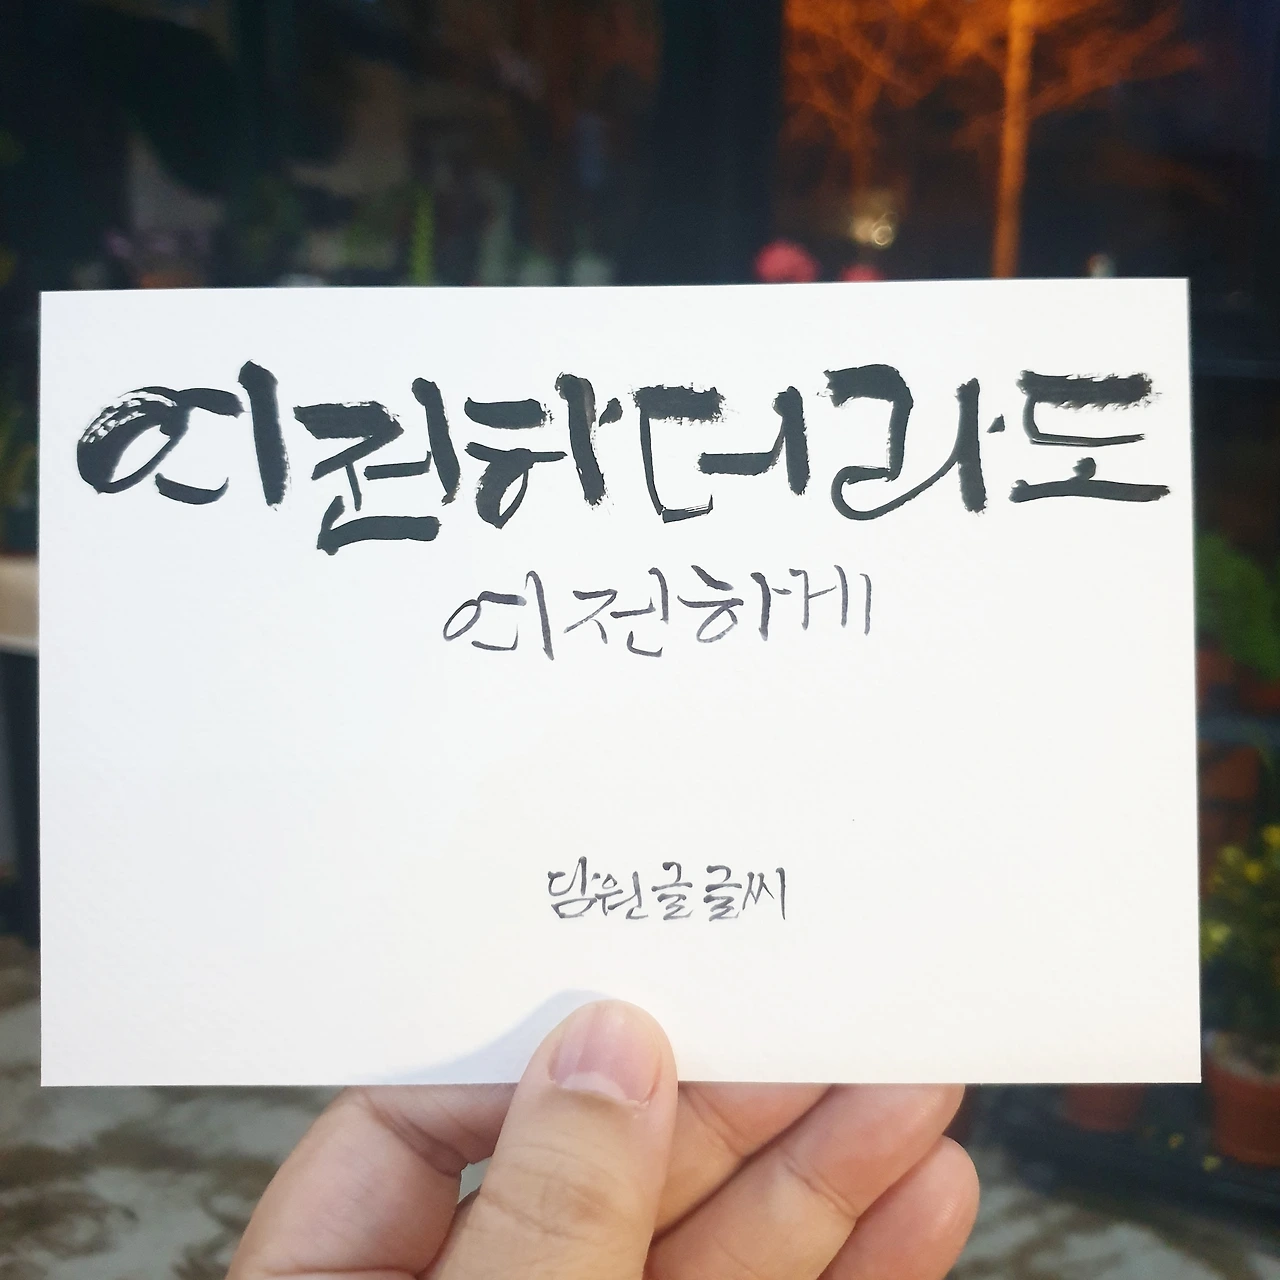 여전하더라도
여전하게
담원글글씨